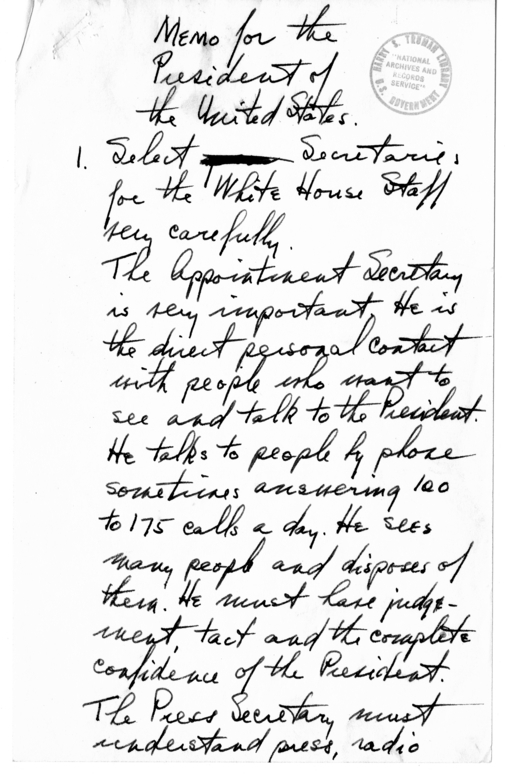 Memo for the
President of
the United States.
HARRY S. TRUMAN LIBRARY
"NATIONAL
ARCHIVES AND
RECORDS
SERVICE"
U.S. GOVERNMENT
1. Select Secretaries
for the White House Staff
very carefully.
The Appointment Secretary
is very important. He is
the direct personal contact
with people who want to
see and talk to the President.
He talks to people by phone
sometimes answering 100
to 175 calls a day. He sees
many people and disposes of
them. He must have judge-
ment, tact and the complete
confidence of the President.
The Press Secretary must
understand press, radio